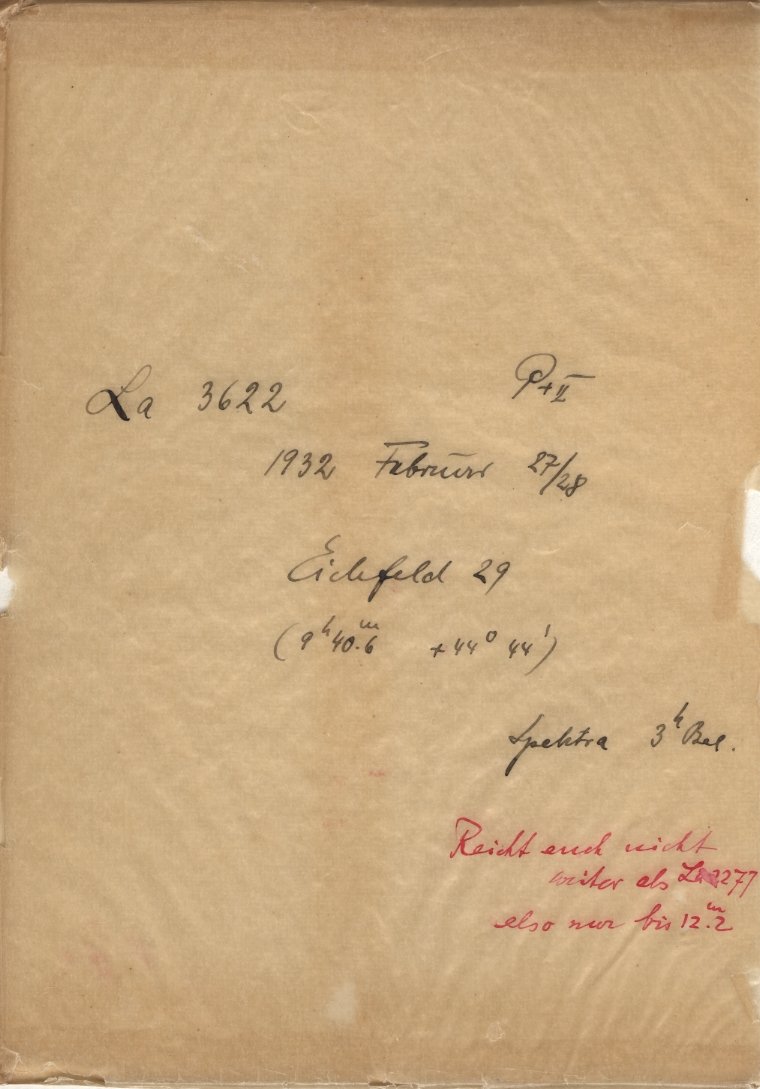 La 3622 P+II
1932 Februar 27/28
Eichfeld 29
(9ʰ 40.ᵐ6 +44⁰ 44')
Spektra 3ʰ Bel.
Reicht auch nicht
weiter als La 3277
also nur bis 12.ᵐ2